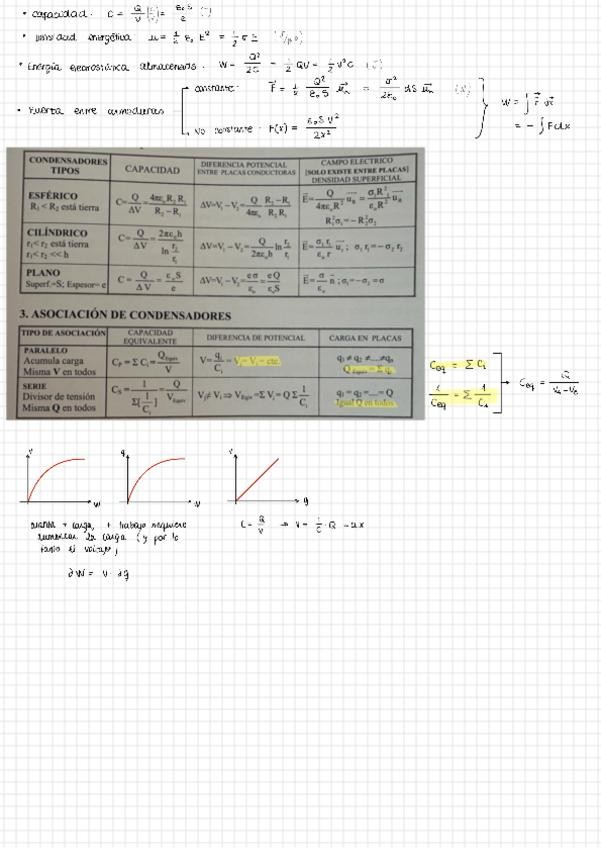 • Capacidad: C = Q/V = ε₀S/e
• Densidad energética u = 1/2 ε₀ E² = 1/2 σE
• Energía electrostática almacenada: W = Q²/2C = 1/2 QV = 1/2 V²C
• Fuerza entre armaduras
constante: F⃗ = 1/2 Q²/ε₀S u⃗n = σ²/2ε₀ dS u⃗n
No constante: F(x) = ε₀SV²/2x²
W = ∫ F⃗ dx⃗
= - ∫ F dx
CONDENSADORES TIPOS CAPACIDAD DIFERENCIA POTENCIAL ENTRE PLACAS CONDUCTORAS CAMPO ELECTRICO [SOLO EXISTE ENTRE PLACAS] DENSIDAD SUPERFICIAL
ESFÉRICO
R₁ < R₂ está tierra
C = Q/ΔV = 4πε₀R₁R₂/R₂ − R₁
ΔV=V₁ − V₂ = Q/4πε₀ R₂ − R₁/R₂ R₁
E⃗ = Q/4πε₀R² u⃗R = σ₁R²₁/ε₀R² u⃗R
R²₁σ₁=−R²₂σ₂
CILÍNDRICO
r₁< r₂ está tierra
r₁< r₂ << h
C = Q/ΔV = 2πε₀h/ln r₂/r₁
ΔV=V₁ − V₂ = Q/2πε₀h ln r₂/r₁
E⃗ = σ₁ r₁/ε₀ r u⃗r ; σ₁ r₁ = −σ₂ r₂
PLANO
Superf.=S; Espesor= e
C = Q/ΔV = ε₀S/e
ΔV=V₁ − V₂ = eσ/ε₀ = eQ/ε₀S
E⃗ = σ/ε₀ n⃗ ; σ₁=−σ₂ =σ
3. ASOCIACIÓN DE CONDENSADORES
TIPO DE ASOCIACIÓN CAPACIDAD EQUIVALENTE DIFERENCIA DE POTENCIAL CARGA EN PLACAS
PARALELO
Acumula carga
Misma V en todos
Cₚ = Σ Cᵢ = Q Equiv/V
V = qᵢ/Cᵢ = Vᵢ = cte.
q₁ ≠ q₂ ≠....≠qₙ
Q Equiv = Σ qᵢ
SERIE
Divisor de tensión
Misma Q en todos
Cₛ = 1/Σ[1/Cᵢ] = Q/V Equiv
Vᵢ≠ Vⱼ ⇒ V Equiv =Σ Vᵢ= Q Σ 1/Cᵢ
q₁ = q₂ =....= Q
Igual Q en todos
Ceq = Σ Ci
1/Ceq = Σ 1/Ci
Ceq = Q/VA−VB
V W
q W
V q
cuanta + carga, + trabajo requiere
aumentar la carga (y por lo
tanto el voltaje)
∂W = V · ∂q
C = Q/V → V = 1/C · Q